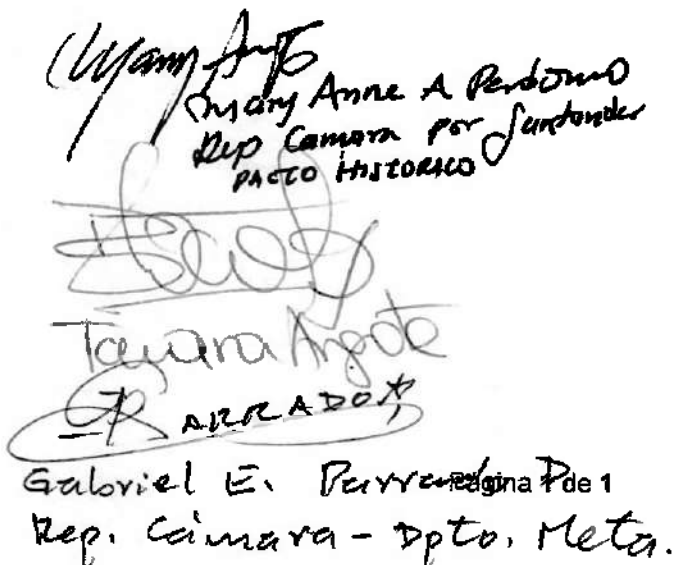 Mary Anne A Perdomo
Rep Camara por Santander
PACTO HISTORICO
Tamara Argote
PARRADO
Gabriel E. Parrado
Página 1 de 1
Rep. Cámara - Dpto. Meta.